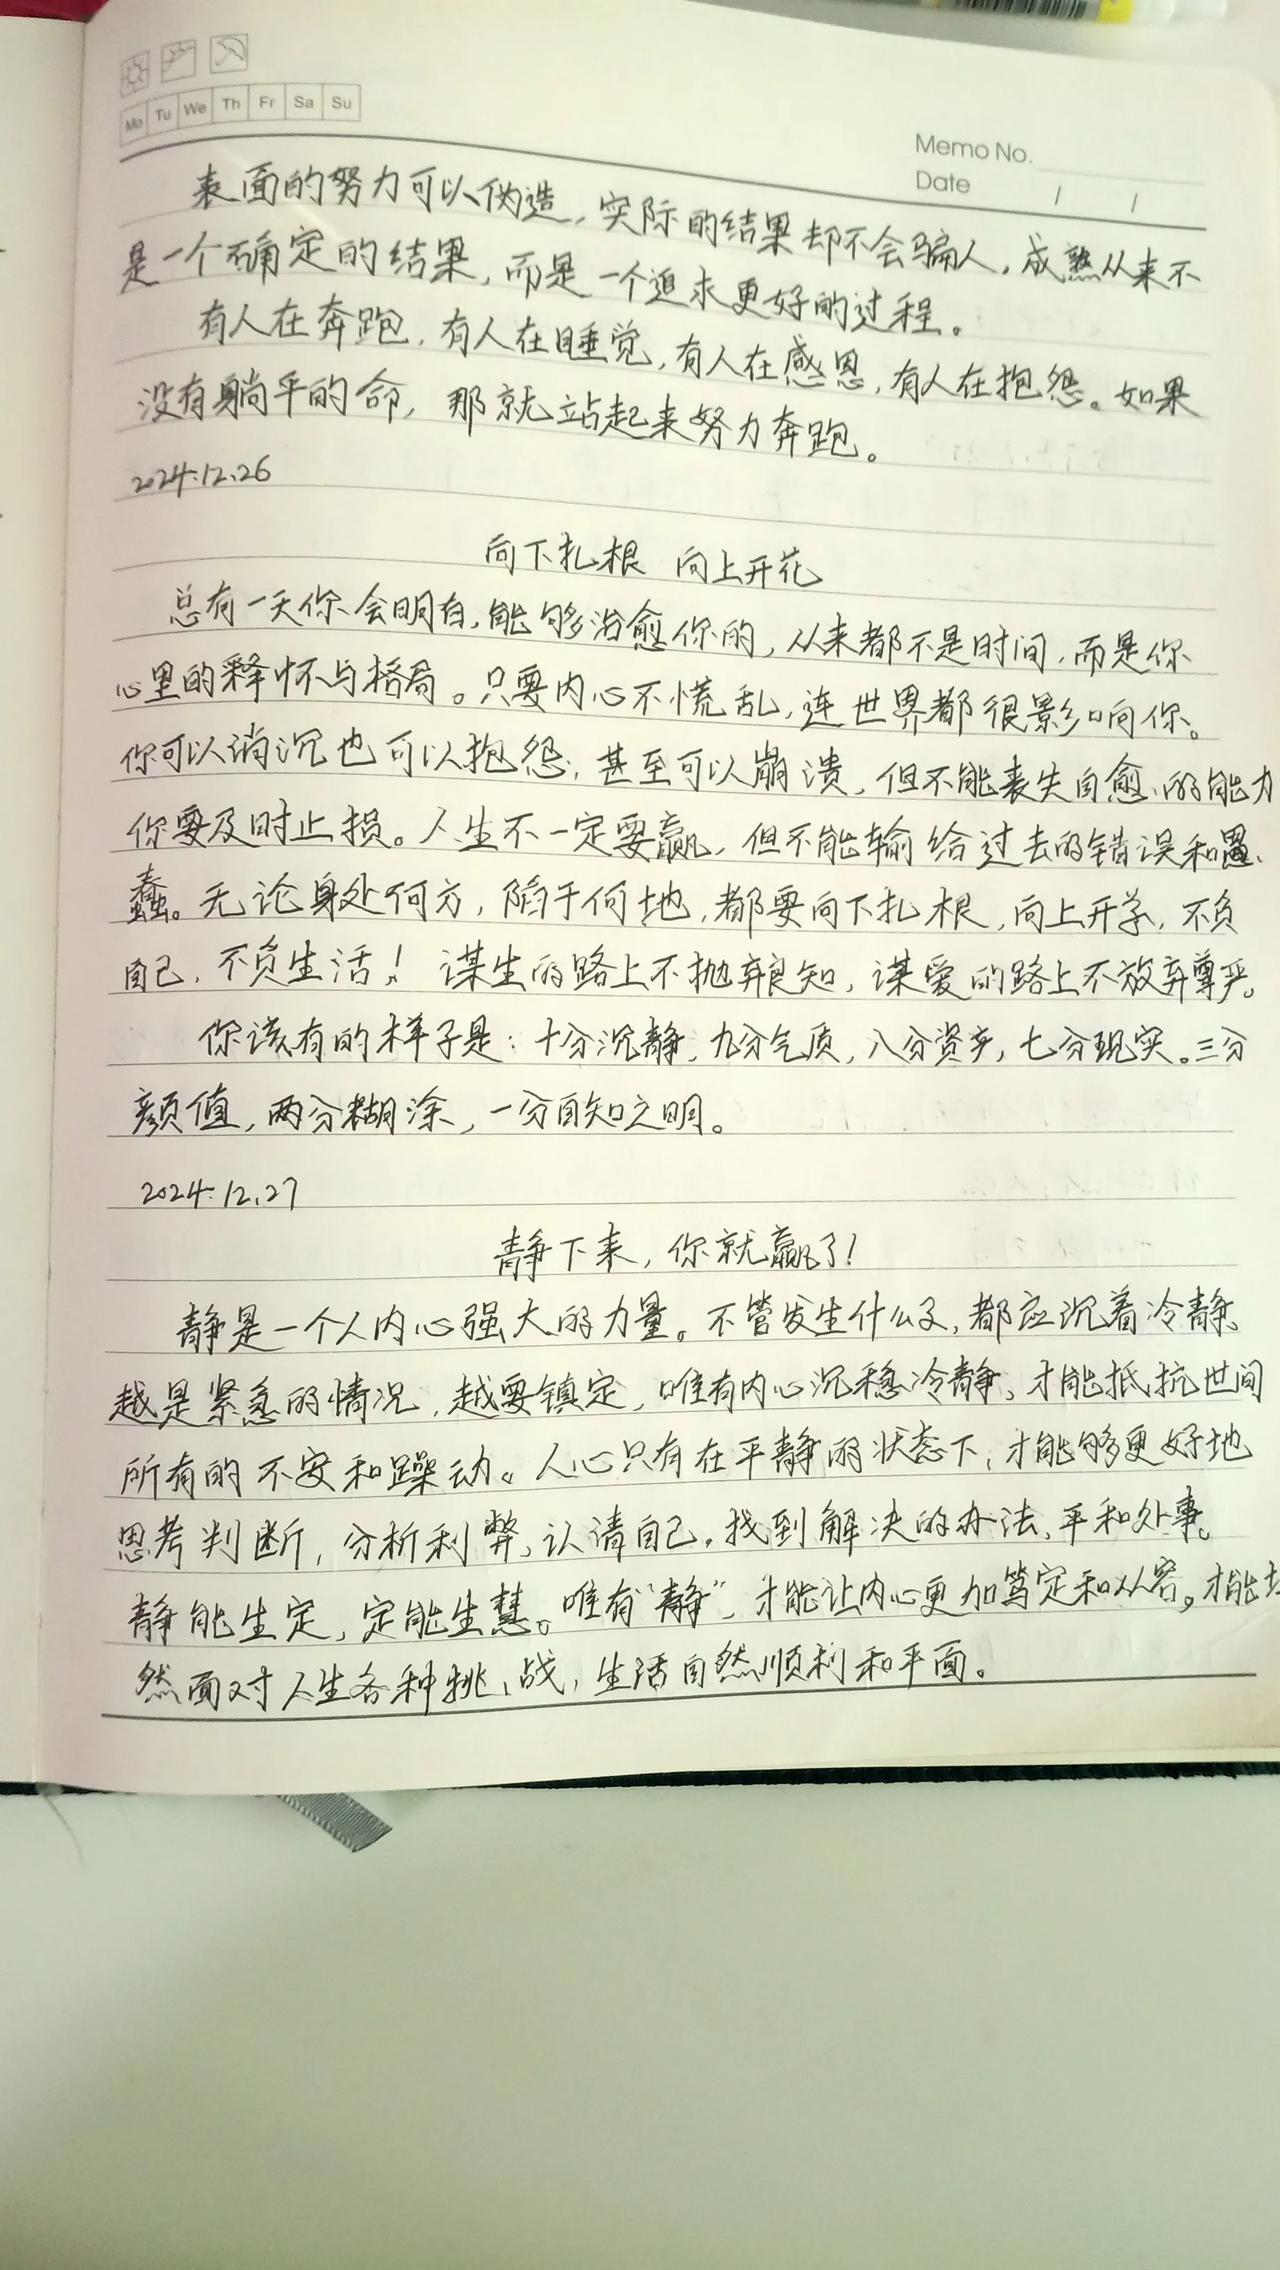 Mo Tu We Th Fr Sa Su
Memo No.
Date / /
表面的努力可以伪造,实际的结果却不会骗人,成熟从来不
是一个确定的结果,而是一个追求更好的过程。
有人在奔跑,有人在睡觉,有人在感恩,有人在抱怨。如果
没有躺平的命,那就站起来努力奔跑。
2024.12.26
向下扎根 向上开花
总有一天你会明白,能够治愈你的,从来都不是时间,而是你
心里的释怀与格局。只要内心不慌乱,连世界都很影响你。
你可以消沉也可以抱怨,甚至可以崩溃,但不能丧失自愈的能力
你要及时止损。人生不一定要赢,但不能输给过去的错误和愚
蠢。无论身处何方,陷于何地,都要向下扎根,向上开,不负
自己,不负生活!谋生的路上不抛弃良知,谋爱的路上不放弃尊严。
你该有的样子是:十分沉静,九分气质,八分资产,七分现实。三分
颜值,两分糊涂,一分自知之明。
2024.12.27
静下来,你就赢了!
静是一个人内心强大的力量。不管发生什么,都应沉着冷静。
越是紧急的情况,越要镇定,唯有内心沉稳冷静,才能抵抗世间
所有的不安和躁动。人心只有在平静的状态下,才能够更好地
思考判断,分析利弊,认清自己。找到解决的办法,平和处事。
静能生定,定能生慧。唯有“静”,才能让内心更加笃定和从容。才能
然面对人生各种挑战,生活自然顺利和平面。